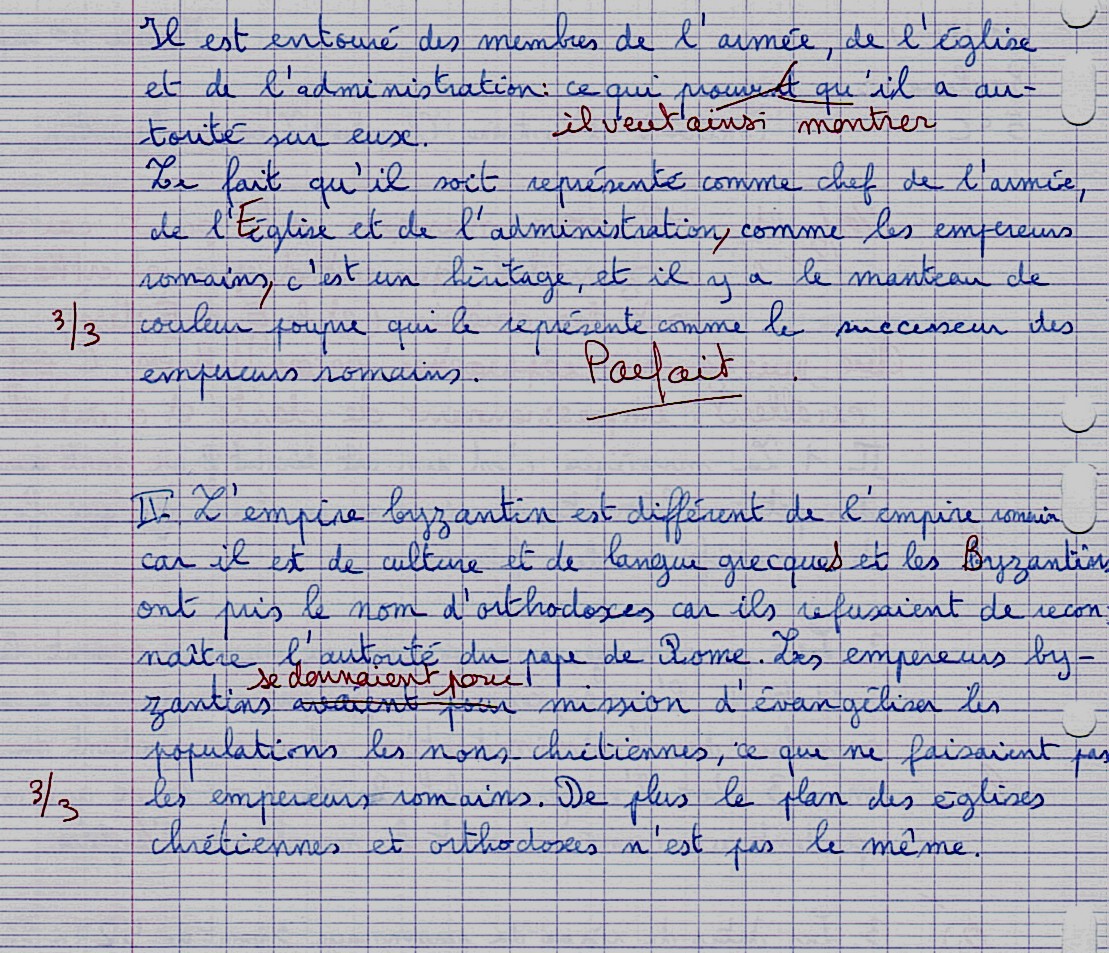 Il est entouré des membres de l'armée, de l'église
et de l'administration: ce qui prouvent qu'il a au-
torité sur eux. il veut ainsi montrer
Le fait qu'il soit représenté comme chef de l'armée,
de l'Église et de l'administration, comme les empereurs
romains, c'est un héritage, et il y a le manteau de
3/3 couleur poupre qui le représente comme le successeur des
empereurs romains. Parfait.
II- L'empire byzantin est différent de l'empire romain
car il est de culture et de langue grecques et les Byzantins
ont pris le nom d'orthodoxes car ils refusaient de recon-
naître l'autorité du pape de Rome. Les empereurs by-
se donnaient pour
zantins avaient pour mission d'évangéliser les
populations les nons-chrétiennes, ce que ne faisaient pas
3/3 les empereurs romains. De plus le plan des églises
chrétiennes et orthodoxes n'est pas le même.